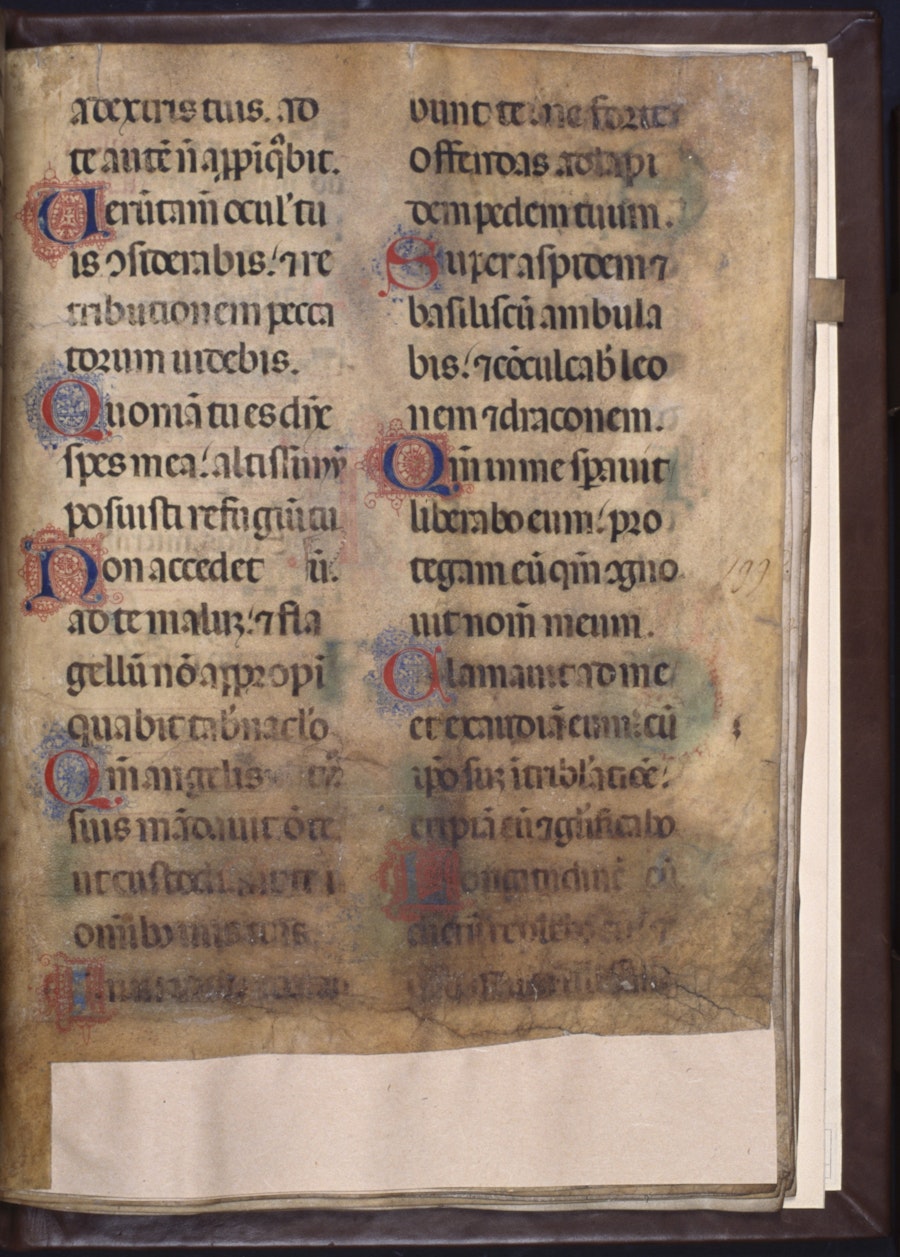 a dextris tuis. ad
te autē ñ appīq̄bit.
Uerūtam̄ ocul' tu
is ↄsiderabis: ⁊ re
tributionem pecca
torum uidebis.
Quoniā tu es dn̄e
spes mea: altissimū
posuisti refugiū tu
ū.
Non accedet
ad te maluꝫ: ⁊ fla
gellū nō appropī
quabit tab'nac'lo
Qm̄ angelis
suis mādauit ō te
ut custodi
om̄ibꝰ uiis tuis.
I
bunt te ne forte
offendas ad lapi
dem pedem tuum.
Super aspidem ⁊
basiliscū ambula
bis: ⁊ cōculcab' leo
nem ⁊ draconem.
Qm̄ in me sꝑauit
liberabo eum: pro
tegam eū qm̄ ↄgno
uit nom̄ meum.
Clamauit ad me
et exaudiā eum: cū
ip̄o suꝫ ī tribl'atiōe:
eripiā eū ⁊ gl'ificabo
Longitudine
199